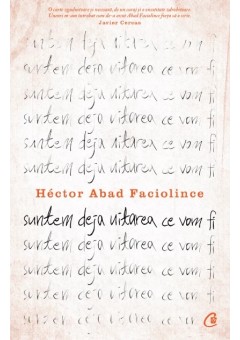 "O carte zguduitoare și necesară, de un curaj și o onestitate tulburătoare.
Uneori
Javier Cercas
suntem deja uitarea ce vom fi
suntem deja uitarea ce vom fi
suntem deja uitarea ce vom fi
suntem deja uitarea ce vom fi
suntem deja uitarea ce vom fi
suntem deja uitarea ce vom fi
Héctor Abad Faciolince
suntem deja uitarea ce vom fi
suntem deja uitarea ce vom fi
suntem deja uitarea ce vom fi
suntem deja uitarea ce vom fi